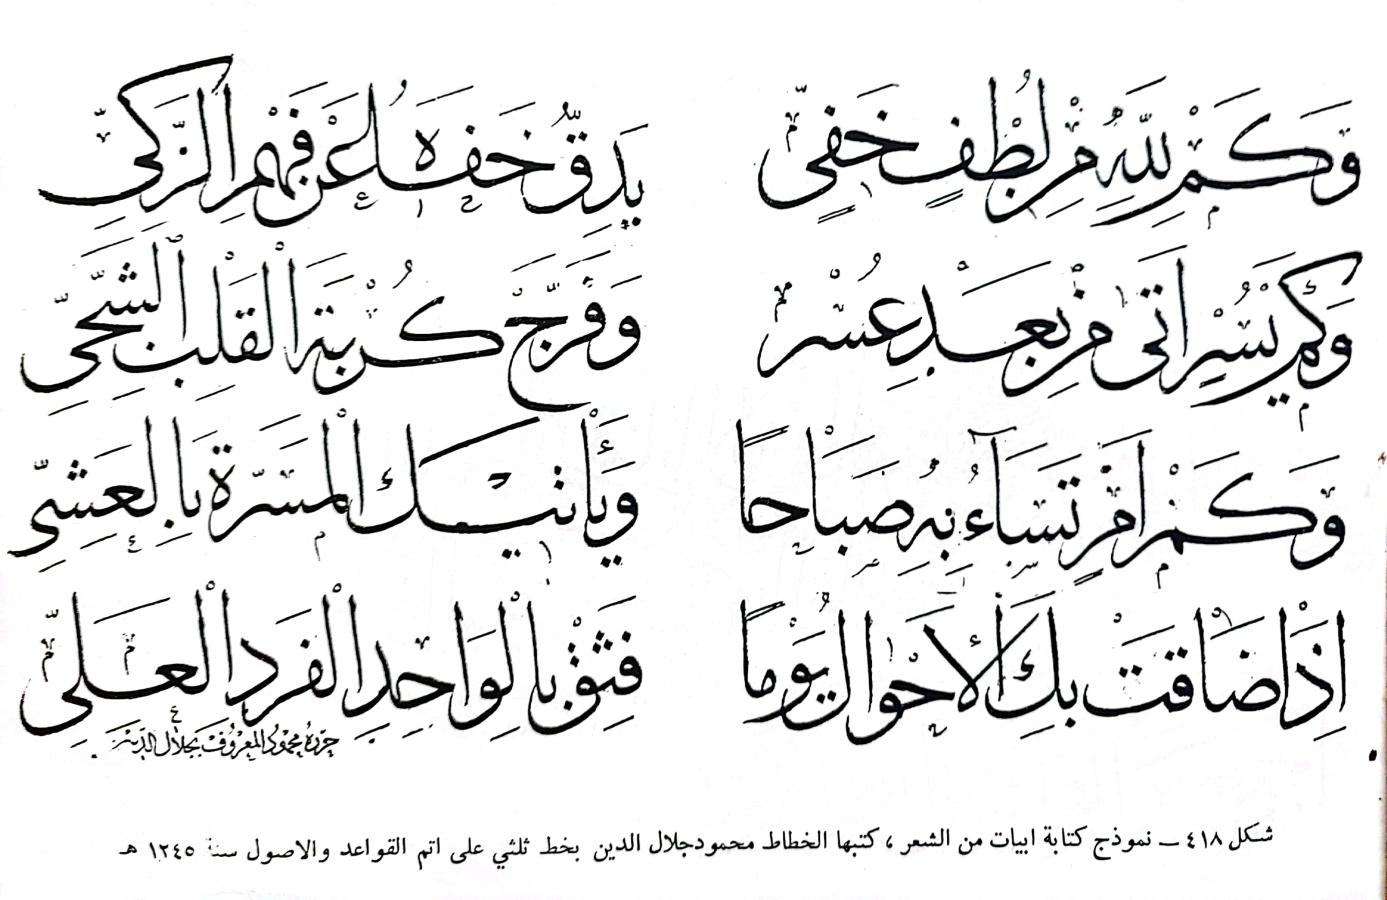 وَكَمْ لِلّٰهِ مِنْ لُطْفٍ خَفِيٍّ يَدِقُّ خَفَاهُ عَنْ فَهْمِ الزَّكِيِّ
وَكَمْ يُسْرٍ اَتٰى مِنْ بَعْدِ عُسْرٍ وَفَرَّجَ كُرْبَةَ الْقَلْبِ الشَّجِيِّ
وَكَمْ اَمْرٍ تُسَاءُ بِهِ صَبَاحًا وَيَأْتِيكَ الْمَسَرَّةُ بِالْعَشِيِّ
اِذَا ضَاقَتْ بِكَ الْاَحْوَالُ يَوْمًا فَثِقْ بِالْوَاحِدِ الْفَرْدِ الْعَلِيِّ
حرره محمود المعروف بجلال الدين
شكل ٤١٨ ــ نموذج كتابة ابيات من الشعر ، كتبها الخطاط محمود جلال الدين بخط ثلثي على اتم القواعد والاصول سنة ١٢٤٥ هـ